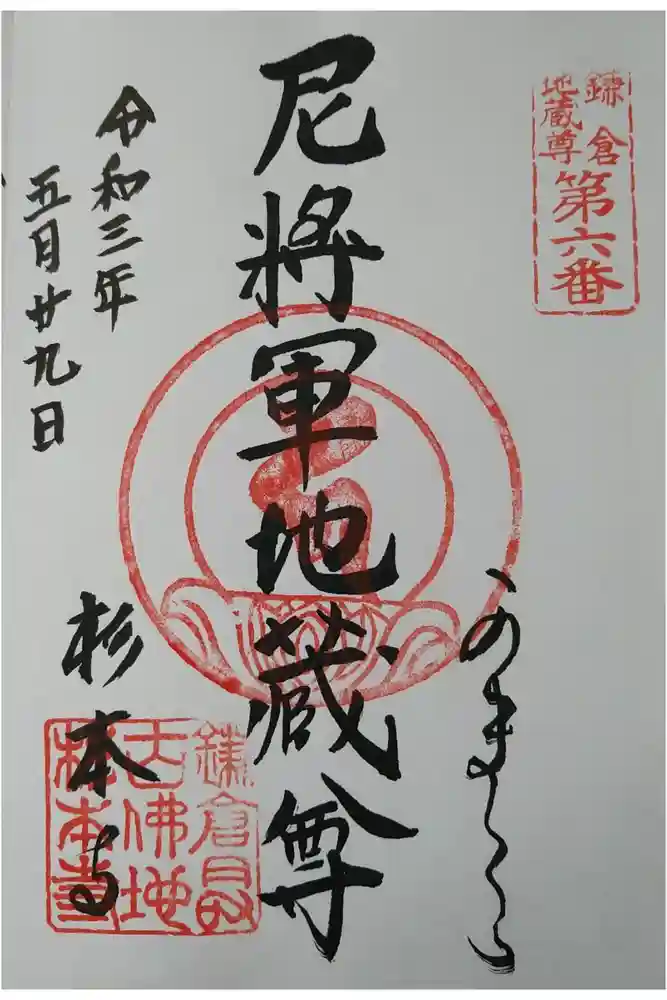 鎌倉
地蔵尊
第六番
かまくら
尼將軍地蔵尊
令和三年
五月廿九日
杉本寺
鎌倉最
古佛地
杉本寺